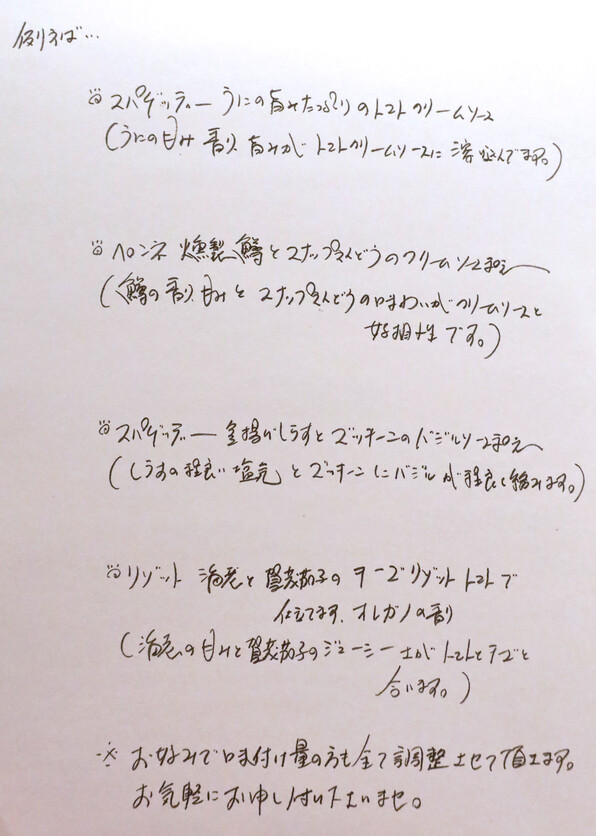 例えば…
スパゲッティー うにの旨みたっぷりのトマトクリームソース
(うにの甘み 香り 旨みが トマトクリームソースに 溶け込んでます。)
ペンネ 燻製鱒とスナップえんどうのクリームソース和え
(鱒の香り、甘みと スナップえんどうの味わいがクリームソースと
好相性です。)
スパゲッティー 釜揚げしらすとズッキーニのバジルソース和え
(しらすの程良い塩気とズッキーニにバジルが程良く絡みます。)
リゾット 海老と賀茂茄子のチーズリゾット トマトで
仕立てます、オレガノの香り
(海老の甘みと賀茂茄子のジューシーさがトマトとチーズと
合います。)
※ お好みで味付け量の方も全て調整させて頂きます。
お気軽にお申し付け下さいませ。